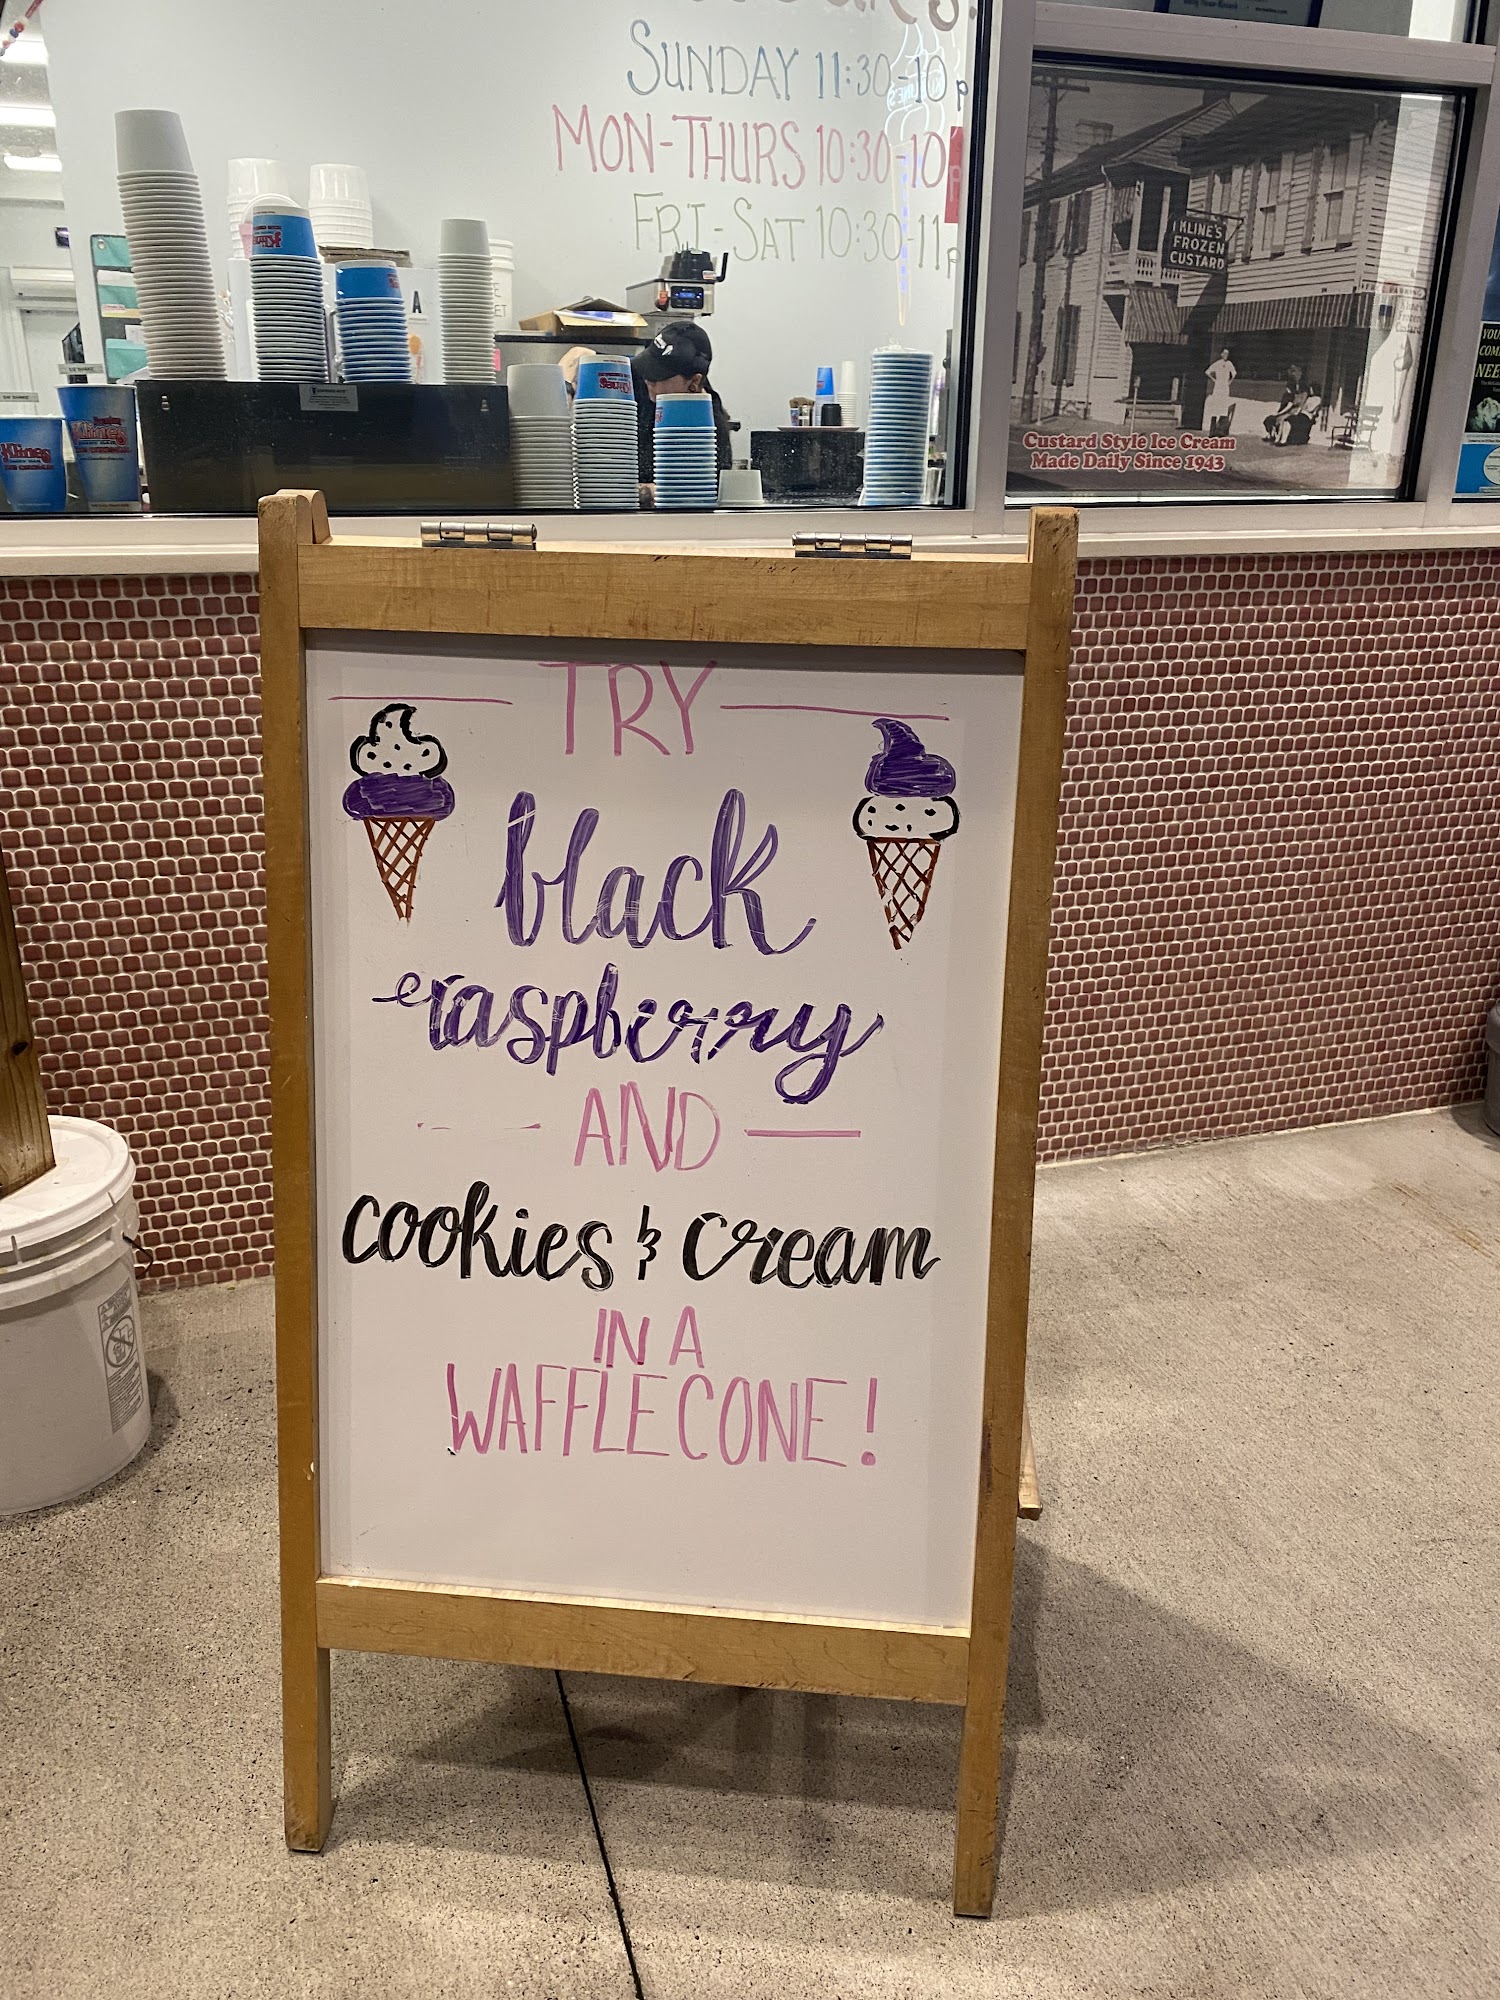 SUNDAY 11:30-10 p
MON-THURS 10:30-10
FRI-SAT 10:30-11p
KLINE'S
FROZEN
CUSTARD
Custard Style Ice Cream
Made Daily Since 1943
Kline's
TRY
black
raspberry
AND
cookies & cream
IN A
WAFFLE CONE!